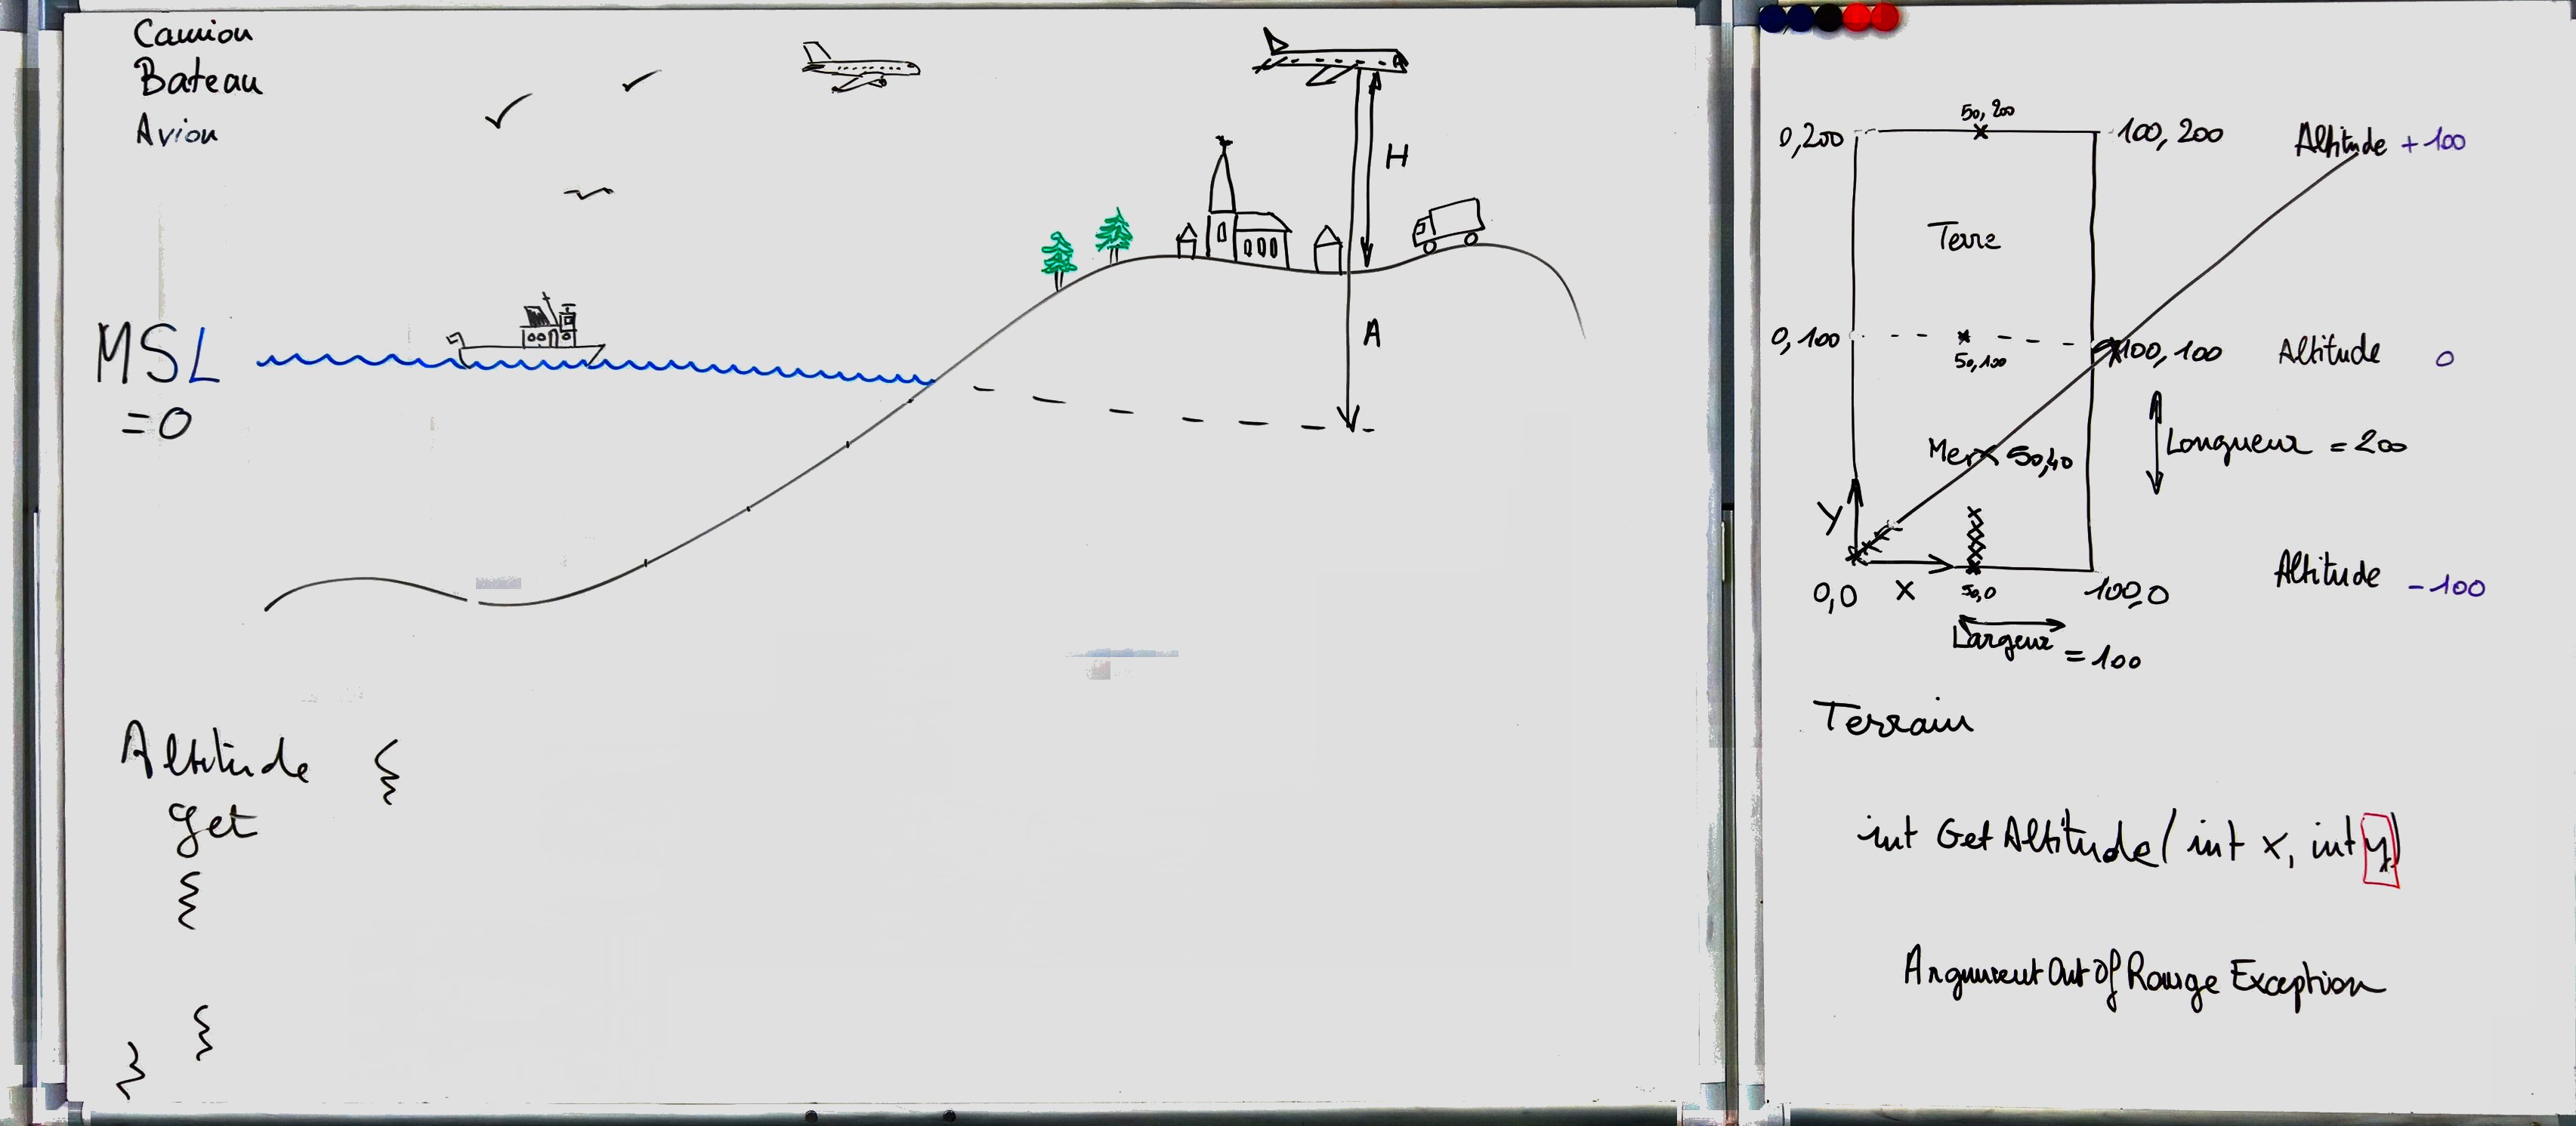 Camion
Bateau
Avion
H
A
MSL
=0
Altitude {
get
{
}
}
50, 200
0,200
100, 200
Altitude +100
Terre
0,100
50,100
100,100
Altitude 0
Mer
50,40
Longueur = 200
Y
0,0
X
50,0
100,0
Altitude -100
Largeur = 100
Terrain
int GetAltitude( int x, int y)
ArgumentOutOfRangeException